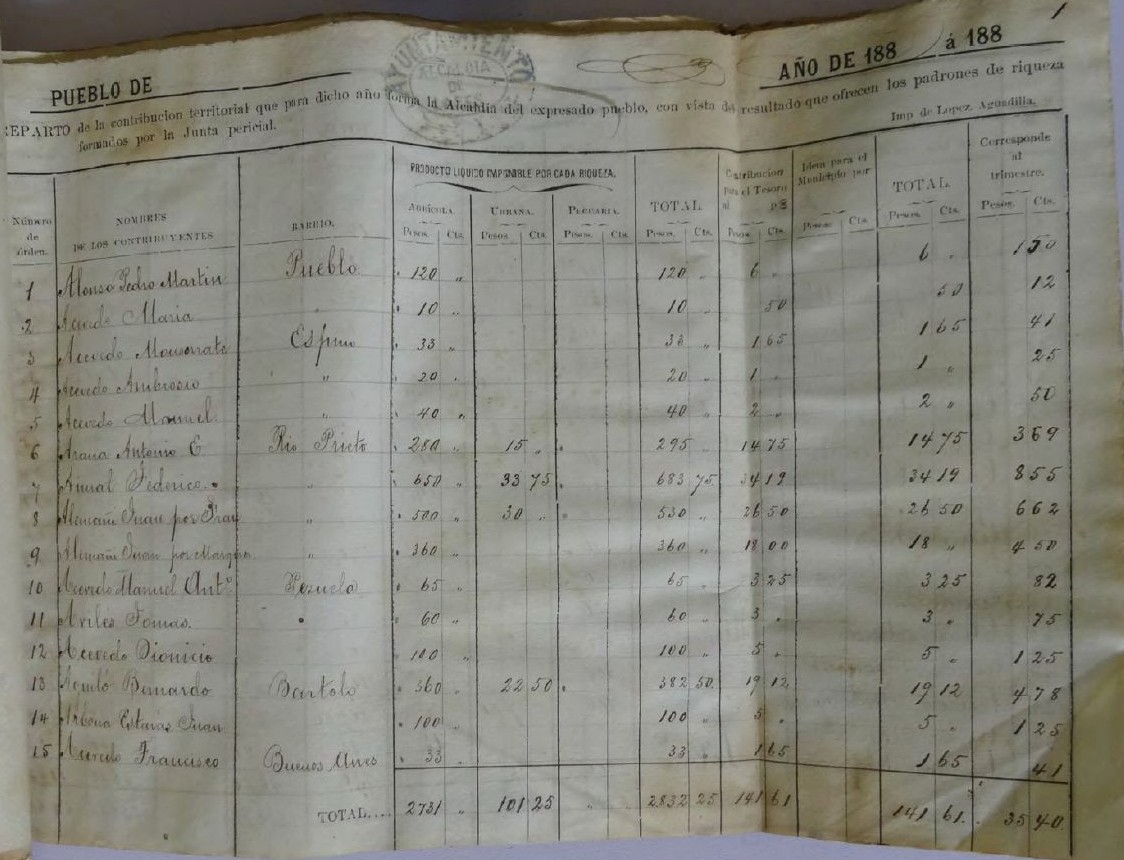 1
PUEBLO DE
AYUNTAMIENTO
ALCALDIA
DE
AÑO DE 188 á 188
REPARTO de la contribucion territorial que para dicho año forma la Alcaldía del expresado pueblo, con vista de resultado que ofrecen los padrones de riqueza
formados por la Junta pericial.
Imp de Lopez, Aguadilla.
Número de órden. NOMBRES DE LOS CONTRIBUYENTES BARRIO. PRODUCTO LIQUIDO IMPONIBLE POR CADA RIQUEZA. TOTAL Contribucion para el Tesoro al Idem para el Municipio por TOTAL Corresponde al trimestre.
AGRÍCOLA. URBANA. PECUARIA.
Pesos. Cts. Pesos. Cts. Pesos. Cts. Pesos. Cts. Pesos. Cts. Pesos. Cts. Pesos. Cts. Pesos. Cts.
1 Alonso Pedro Martin Pueblo 120 " 120 " 6 " 6 " 1 50
2 Acevedo Maria " 10 " 10 " 50 50 12
3 Acevedo Monserrate Espino 33 " 33 " 1 65 1 65 41
4 Acevedo Ambrosio " 20 " 20 " 1 " 1 " 25
5 Acevedo Manuel " 40 " 40 " 2 " 2 " 50
6 Arana Antonio E Rio Prieto 280 " 15 " 295 " 14 75 14 75 3 69
7 Federico " 650 " 33 75 683 75 34 19 34 19 8 55
8 Alemañi Juan por " 500 " 30 " 530 " 26 50 26 50 6 62
9 Alemañi Juan por " 360 " 360 " 18 00 18 " 4 50
10 Acevedo Manuel Antº Pezuela 65 " 65 " 3 25 3 25 82
11 Aviles Tomas. " 60 " 60 " 3 " 3 " 75
12 Acevedo Dionicio 100 " 100 " 5 " 5 " 1 25
13 Aguiló Bernardo Bartolo 360 " 22 50 382 50 19 12 19 12 4 78
14 Arbona Estaras Juan 100 " 100 " 5 " 5 " 1 25
15 Acevedo Francisco Buenos Aires 33 " 33 " 1 65 1 65 41
TOTAL.... 2731 " 101 25 " 2832 25 141 61 141 61 35 40